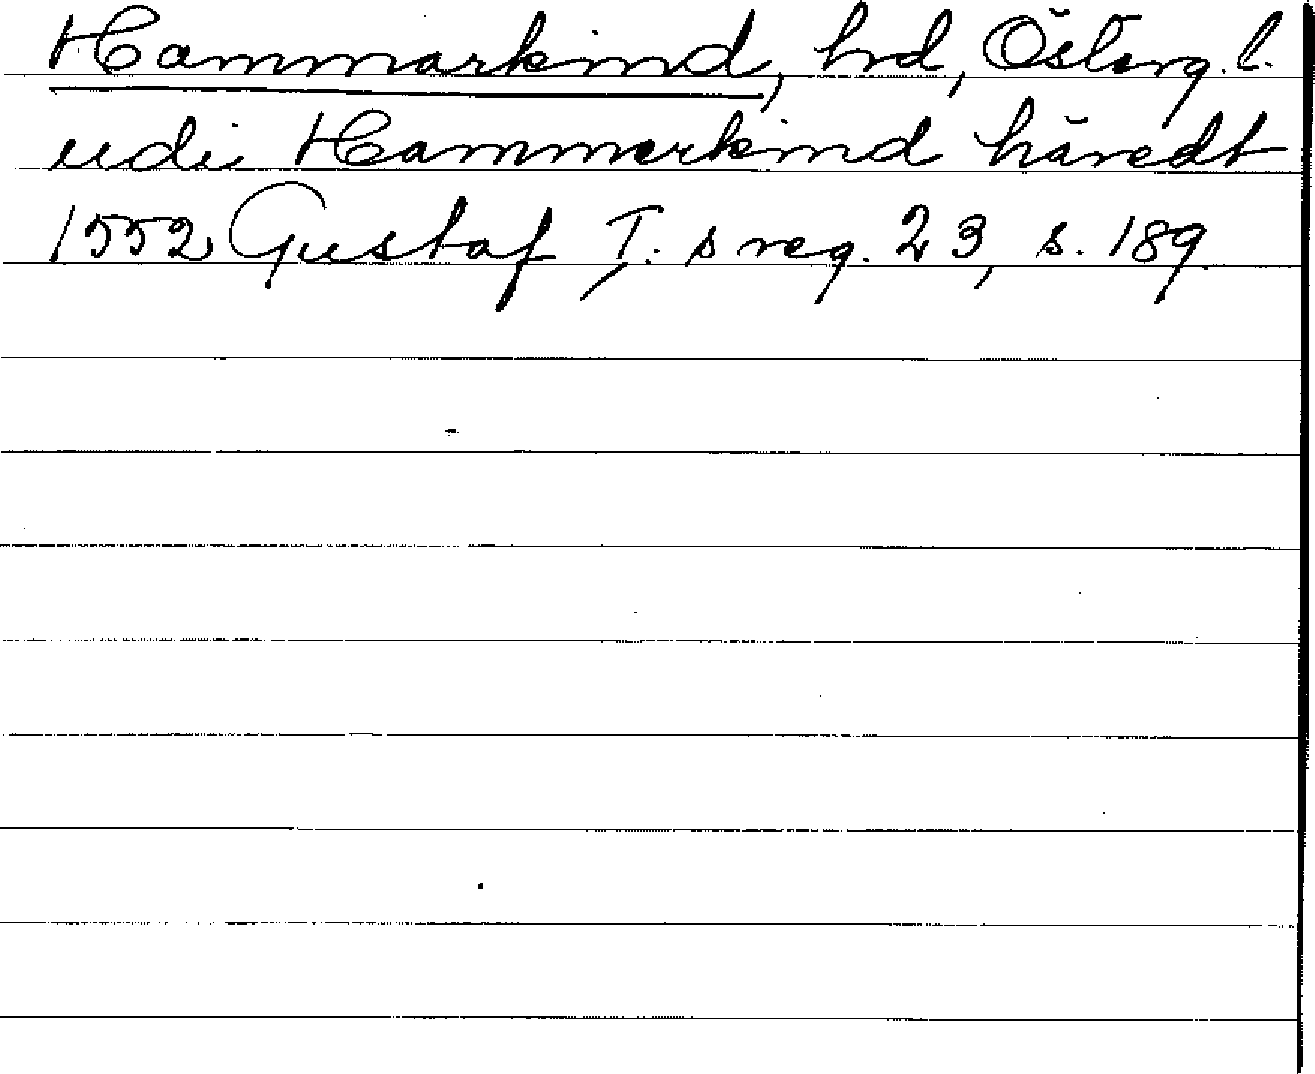 Hammarkind, hd, Österg. l.
udi Hammerkind häredt
1552 Gustaf I: s reg. 23, s. 189